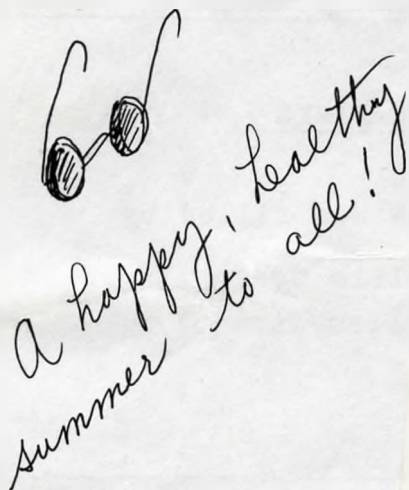 A happy, healthy
summer to all!